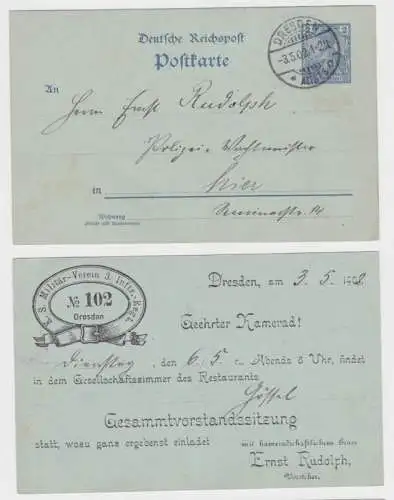 Deutsche Reichspost
Postkarte
DRESDEN
-3.5.02.1-2N.
ALTST.
2
An
Herrn Ernst Rudolph
Polizei-Wachtmeister
in hier
Wohnung
(Straße und Hausnummer)
14
K. S. Militär-Verein 3. Inftr.-Regt.
№ 102
Dresden
Dresden, am 3. 5. 190
Geehrter Kamerad!
Dienstag, den 6. 5. Abends 8 Uhr, findet
in dem Gesellschaftszimmer des Restaurants
Gössel
Gesammtvorstandssitzung
statt, wozu ganz ergebenst einladet
mit kameradschaftlichem Gruss
Ernst Rudolph,
Vorsteher.